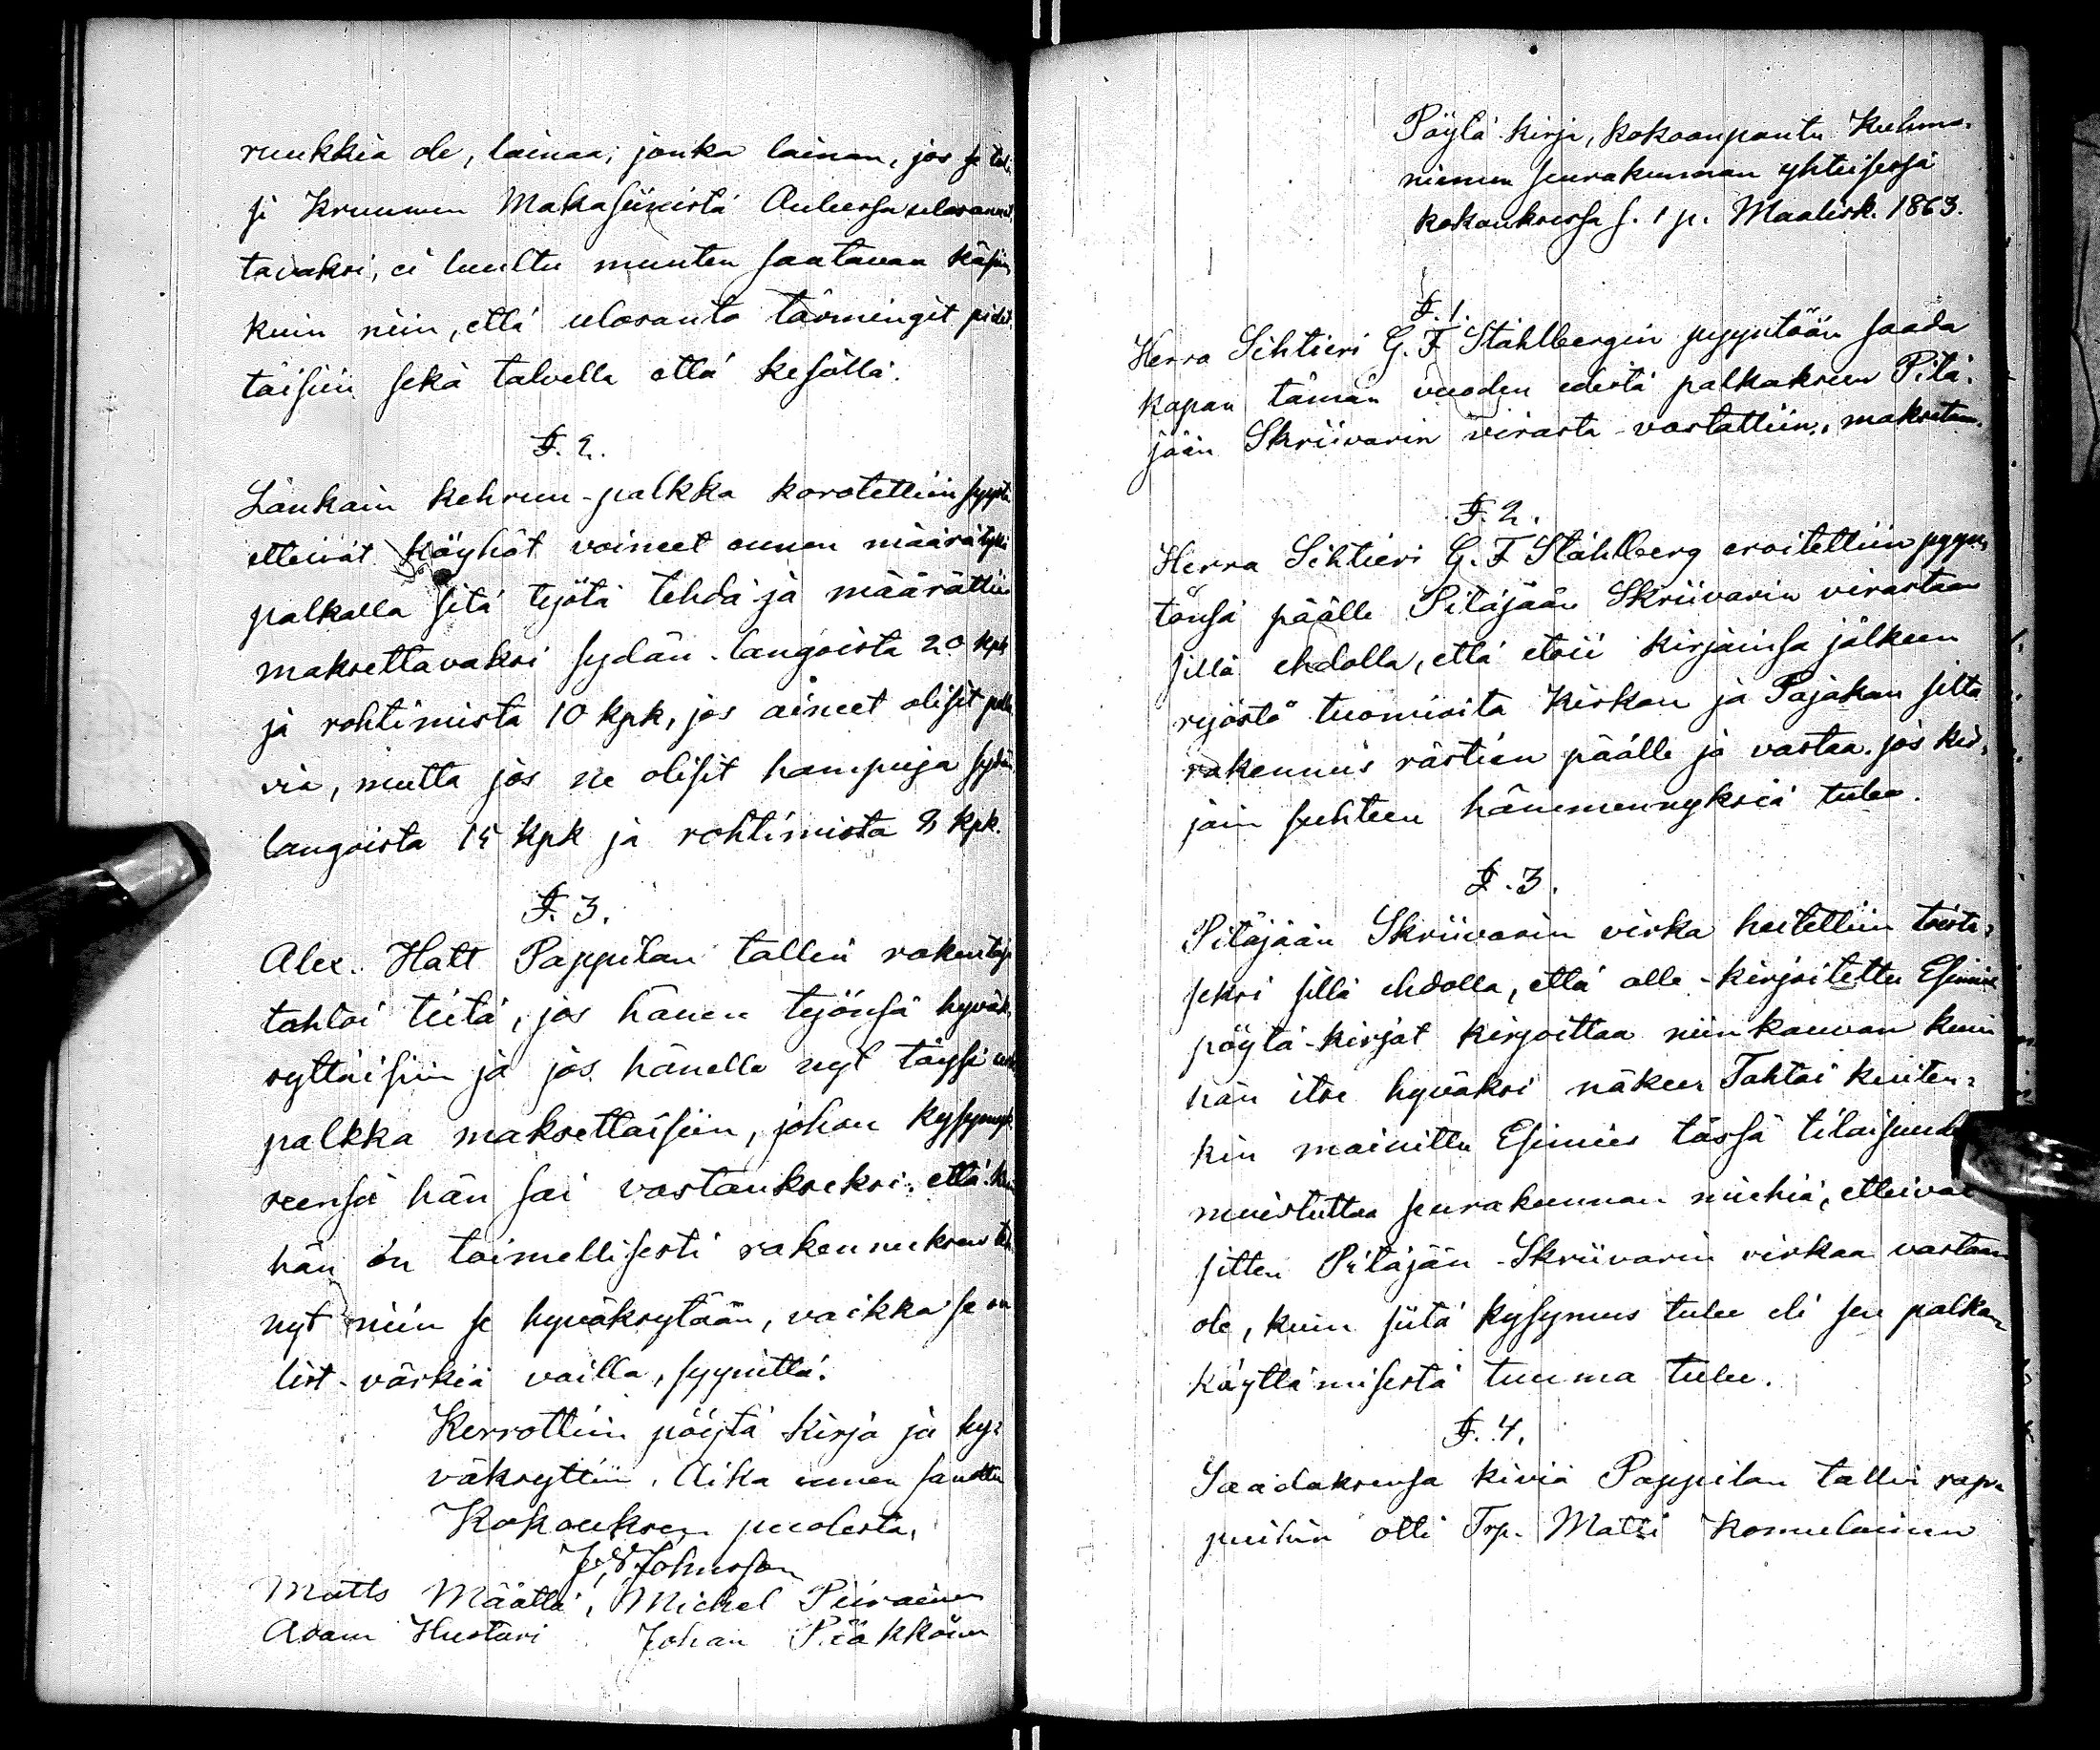 ruukkia ole, lainaa; jonka lainan, jos se tuli
si Kruunun Makasiinista Oulussa ulosannet
tavaksi, ei luultu muuten saatavan käsiin
kuin niin, että ulosanto tärmingit pidet
täisiin sekä talvella että kesällä.
§. 2.
Lankain kehruu-palkka korotettiin syystä
etteivät köyhät voineet ennen määrätyllä
palkalla sitä työtä tehdä ja määrättiin
maksettavaksi sydän-langoista 20 kpk
ja rohtimista 10 kpk, jos aineet olisit pella
via, mutta jos ne olisit hampuja sydän
langoista 15 kpk ja rohtimista 8 kpk.
§. 3.
Alex. Hatt Pappilan tallin rakentaja
tahtoi tietä, jos hänen työnsä hyväk
syttäisiin ja jos hänelle nyt täysi
palkka maksettaisiin, johon kysymyk
seensä hän sai vastaukseksi: että kun
hän on toimellisesti rakennuksen teh
nyt niin se hyväksytään, vaikka se on
list-värkiä vailla, syynittä.
Kerrottiin pöytä kirja ja hy=
väksyttiin. Aika ennen sanottu
Kokouksen puolesta,
J. W. Johnsson
Matts Määttä, Michel Piirainen
Adam Huotari Johan Pääkkönen
Pöytä kirja, kokoonpantu Kuhmo-
niemen seurakunnan yhteisessä
kokouksessa s. 1 p. Maalisk. 1863.
§. 1.
Herra Sihtieri G. F Ståhlbergin pyyntöön saada
kapan tämän vuoden edestä palkakseen Pitä-
jään Skriivarin virasta vastattiin: maksetaan.
§. 2.
Herra Sihtieri G. F Ståhlberg eroitettiin pyyn-
tönsä päälle Pitäjään Skriivarin virastaan
sillä ehdolla, että etsii kirjainsa jälkeen
työstä tuomioita Kirkon ja Pajakan silta
rakennus rästien päälle ja vastaa, jos kir-
jain suhteen hämmennyksiä tulee.
§. 3.
Pitäjään Skriivarin virka heitettiin toista=
seksi sillä ehdolla, että alle-kirjoitettu Esimies
pöytä-kirjat kirjoittaa niin kauvan kuin
hän itse hyväksi näkee Tahtoi kuiten=
kin mainittu Esimies tässä tilaisuude
muistuttaa seurakunnan miehiä, etteivät
sitten Pitäjän-Skriivarin virkaa vastaan
ole, kuin siitä kysymys tulee eli sen palkan
käyttämisestä tuuma tulee.
§. 4.
Saadaksensa kiviä Pappilan tallin rap-
puihin otti Trp. Matti Komulainen